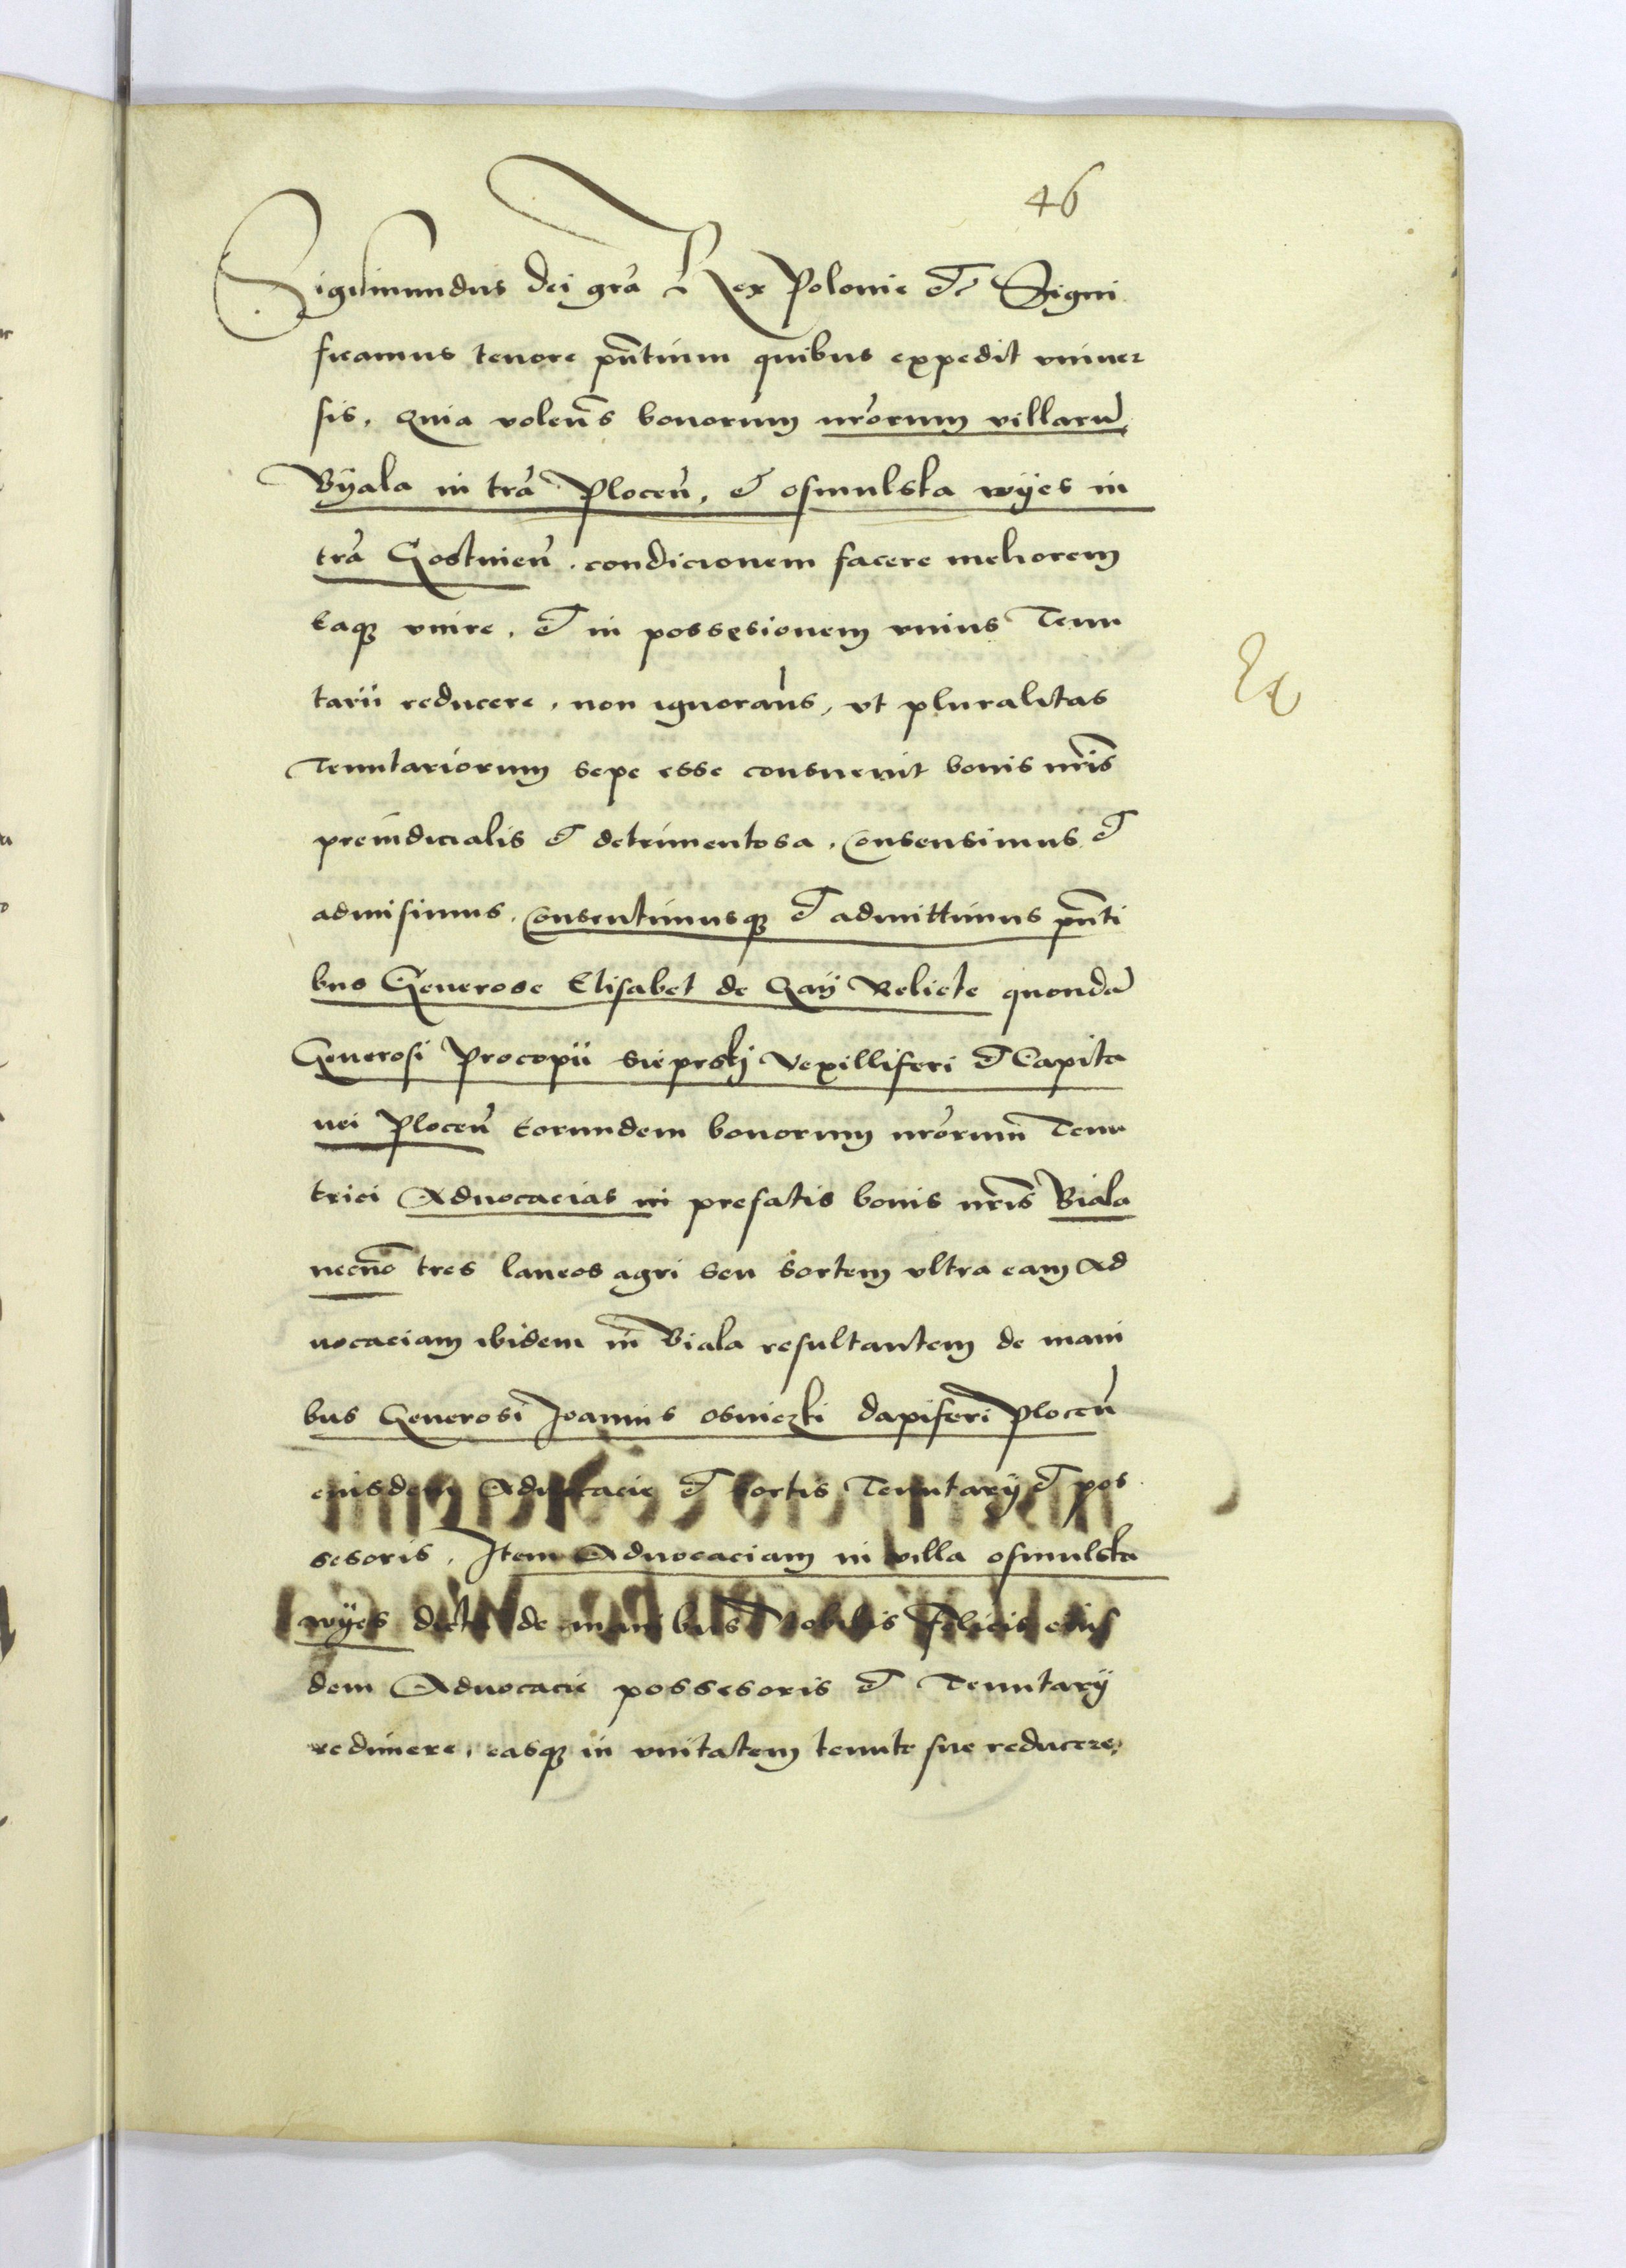 46
Sigismundus dei gra Rex Polonie &c Signi
ficamus tenore pntium quibus expedit vniuer
sis, Quia volens bonorum nrorum villaru
Byala in tra Plocen, et osmulska wyes in
tra Gostinen. condicionem facere meliorem
Eaq vnire, et in possesionem vnius Tenu
tarii reducere, non ignorans, vt pluralitas
Tenutariorum sepe esse consueuit bonis nris
preiudicialis et detrimentosa. Consensimus et
admisimus. Consentimusq et admittimus pnti
bus Generose Elisabet de Gay Relicte quonda
Generosi Procopii sieprskj Vexilliferi et Capita
nei Plocen Eorundem bonorum nrorum Tenu
trici Aduocacias in prefatis bonis nris Biala
necno tres laneos agri seu sortem vltra eam Ad
uocaciam ibidem in Biala resultantem de mani
bus Generosi Joannis osniczki dapiferi Plocen
eiusdem Aduocacie et sortis Tenutarÿ et pos
sesoris. Item Aduocaciam in villa osmulska
wÿes dicta de manibus Nobilis Felicis eius
dem Aduocacie possesoris et Tenutarÿ
redimere, easq in vnitatem tenute sue reducere,